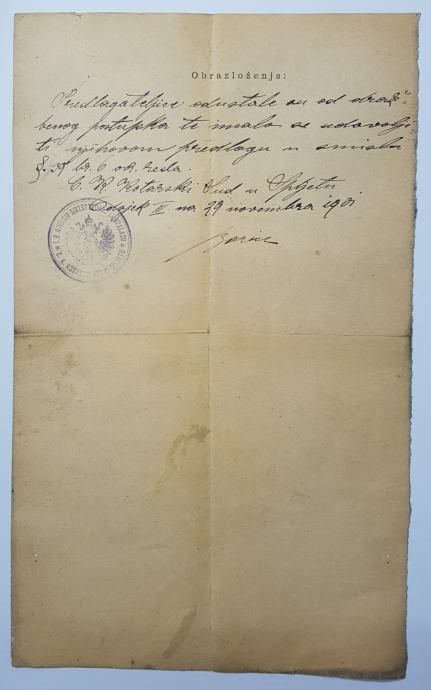 Obrazloženje:
Predlagateljice odustale su od draž-
benog postupka te imalo se udovolji-
ti njihovom predlogu u smislu
§. 39 br. 6 ovr. reda.
C. K. Kotarski Sud u Spljetu
Odsjek III na 29 novembra 1901